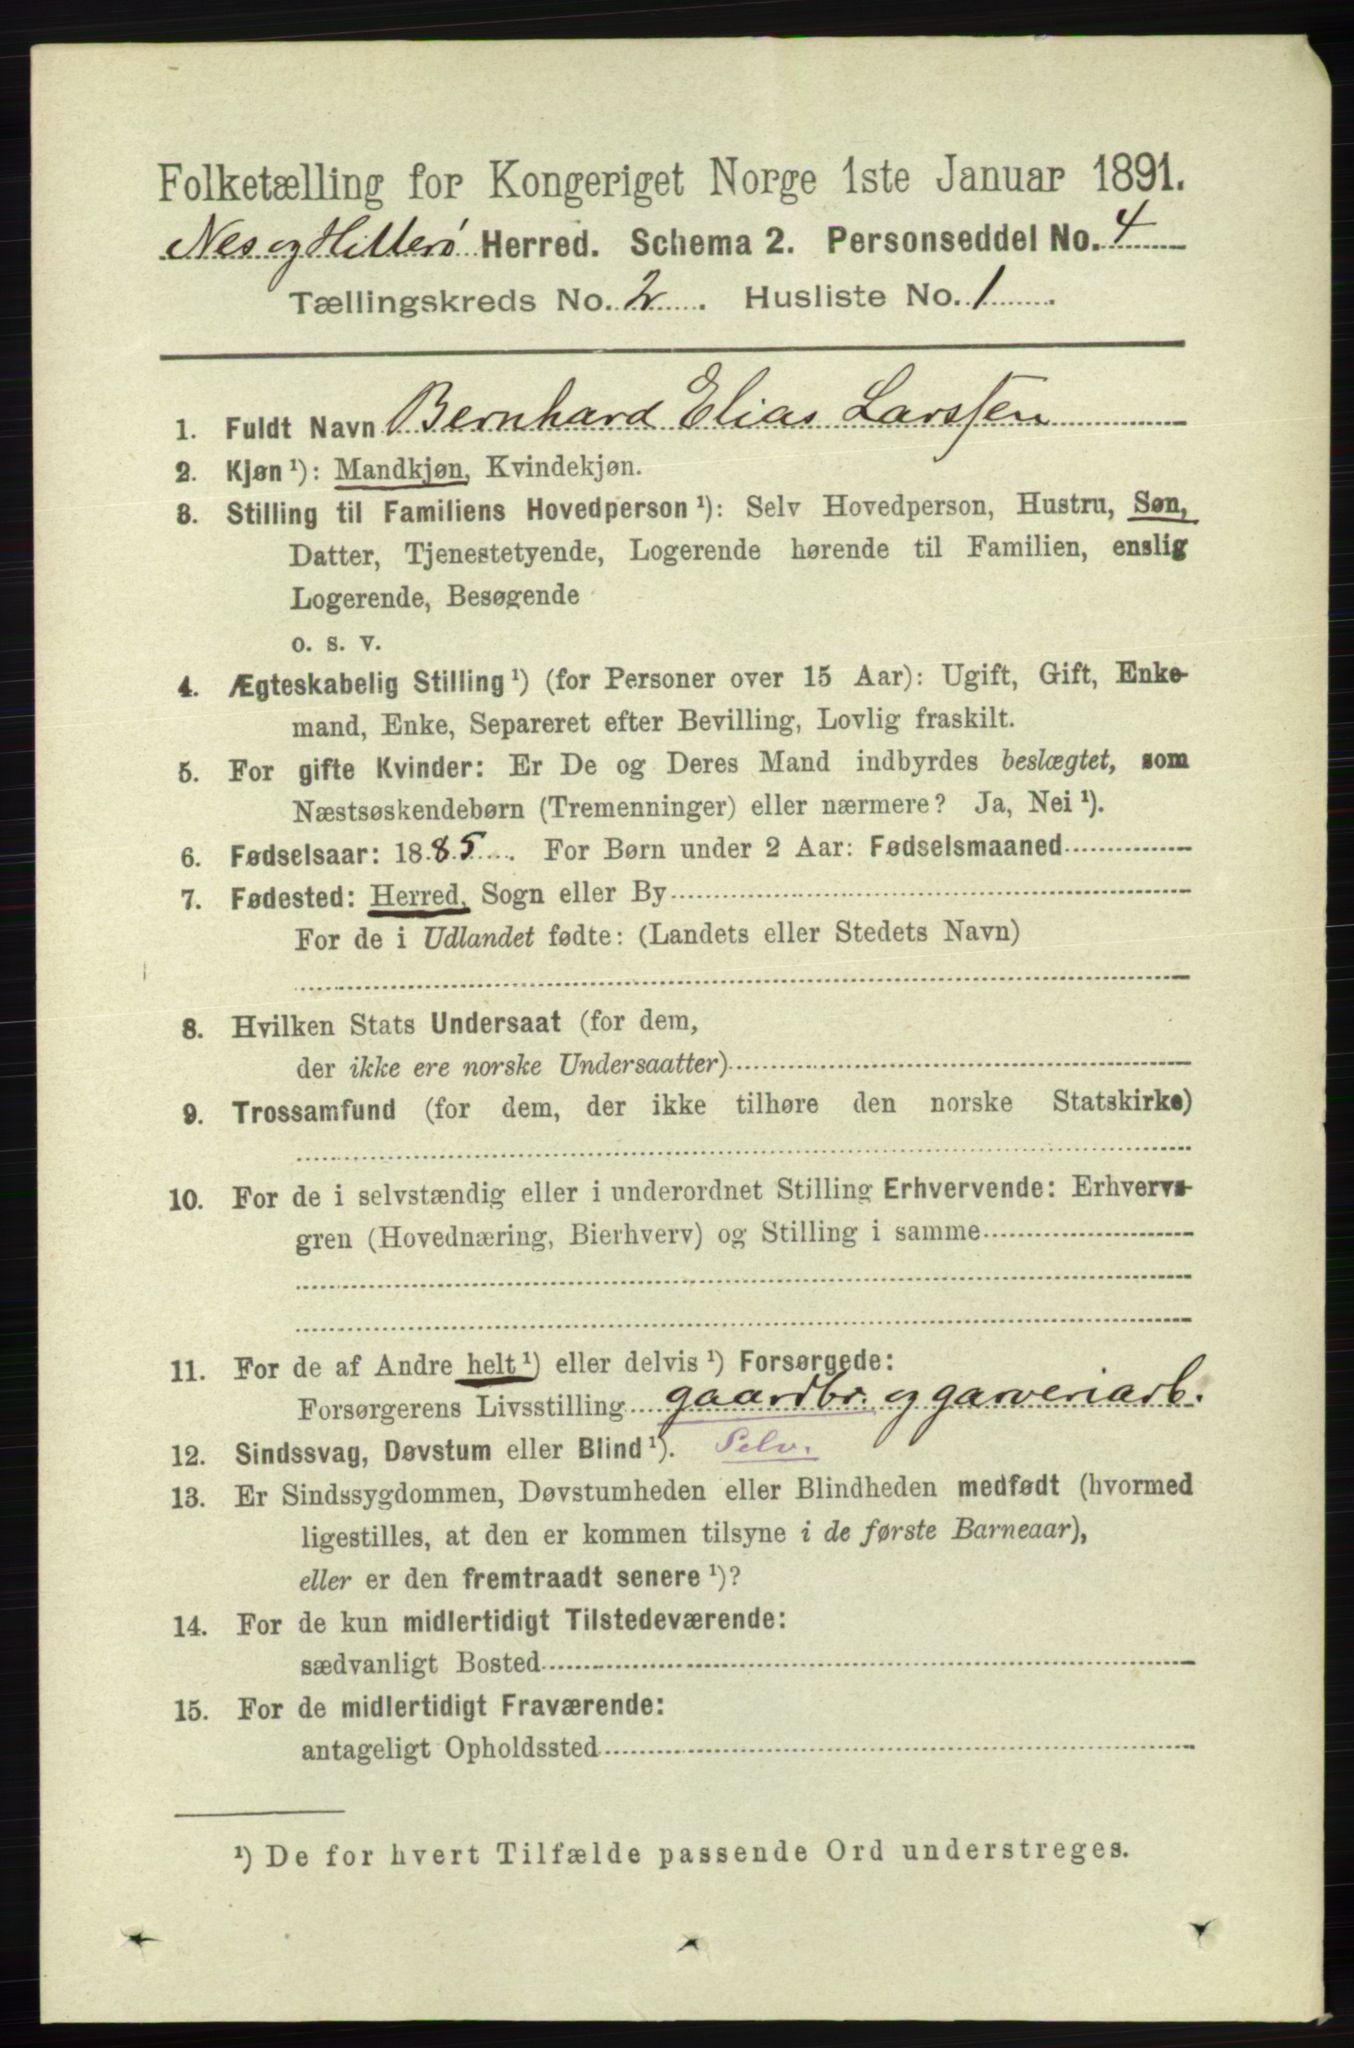 Folketælling for Kongeriget Norge 1ste Januar 1891.
Nes og Hitterø Herred. Schema 2. Personseddel No. 4
Tællingskreds No. 2. Husliste No. 1.
1. Fuldt Navn Bernhard Elias Larssen
2. Kjøn ¹): Mandkjøn, Kvindekjøn.
3. Stilling til Familiens Hovedperson ¹): Selv Hovedperson, Hustru, Søn,
Datter, Tjenestetyende, Logerende hørende til Familien, enslig
Logerende, Besøgende
o. s. v.
4. Ægteskabelig Stilling ¹) (for Personer over 15 Aar): Ugift, Gift, Enke-
mand, Enke, Separeret efter Bevilling, Lovlig fraskilt.
5. For gifte Kvinder: Er De og Deres Mand indbyrdes beslægtet, som
Næstsøskendebørn (Tremenninger) eller nærmere? Ja, Nei ¹).
6. Fødselsaar: 1885. For Børn under 2 Aar: Fødselsmaaned
7. Fødested: Herred, Sogn eller By
For de i Udlandet fødte: (Landets eller Stedets Navn)
8. Hvilken Stats Undersaat (for dem,
der ikke ere norske Undersaatter)
9. Trossamfund (for dem, der ikke tilhøre den norske Statskirke)
10. For de i selvstændig eller i underordnet Stilling Erhvervende: Erhvervs-
gren (Hovednæring, Bierhverv) og Stilling i samme
11. For de af Andre helt ¹) eller delvis ¹) Forsørgede:
Forsørgerens Livsstilling gaardbr. og garveriarb.
12. Sindssvag, Døvstum eller Blind ¹). Selv.
13. Er Sindssygdommen, Døvstumheden eller Blindheden medfødt (hvormed
ligestilles, at den er kommen tilsyne i de første Barneaar),
eller er den fremtraadt senere ¹)?
14. For de kun midlertidigt Tilstedeværende:
sædvanligt Bosted
15. For de midlertidigt Fraværende:
antageligt Opholdssted
¹) De for hvert Tilfælde passende Ord understreges.